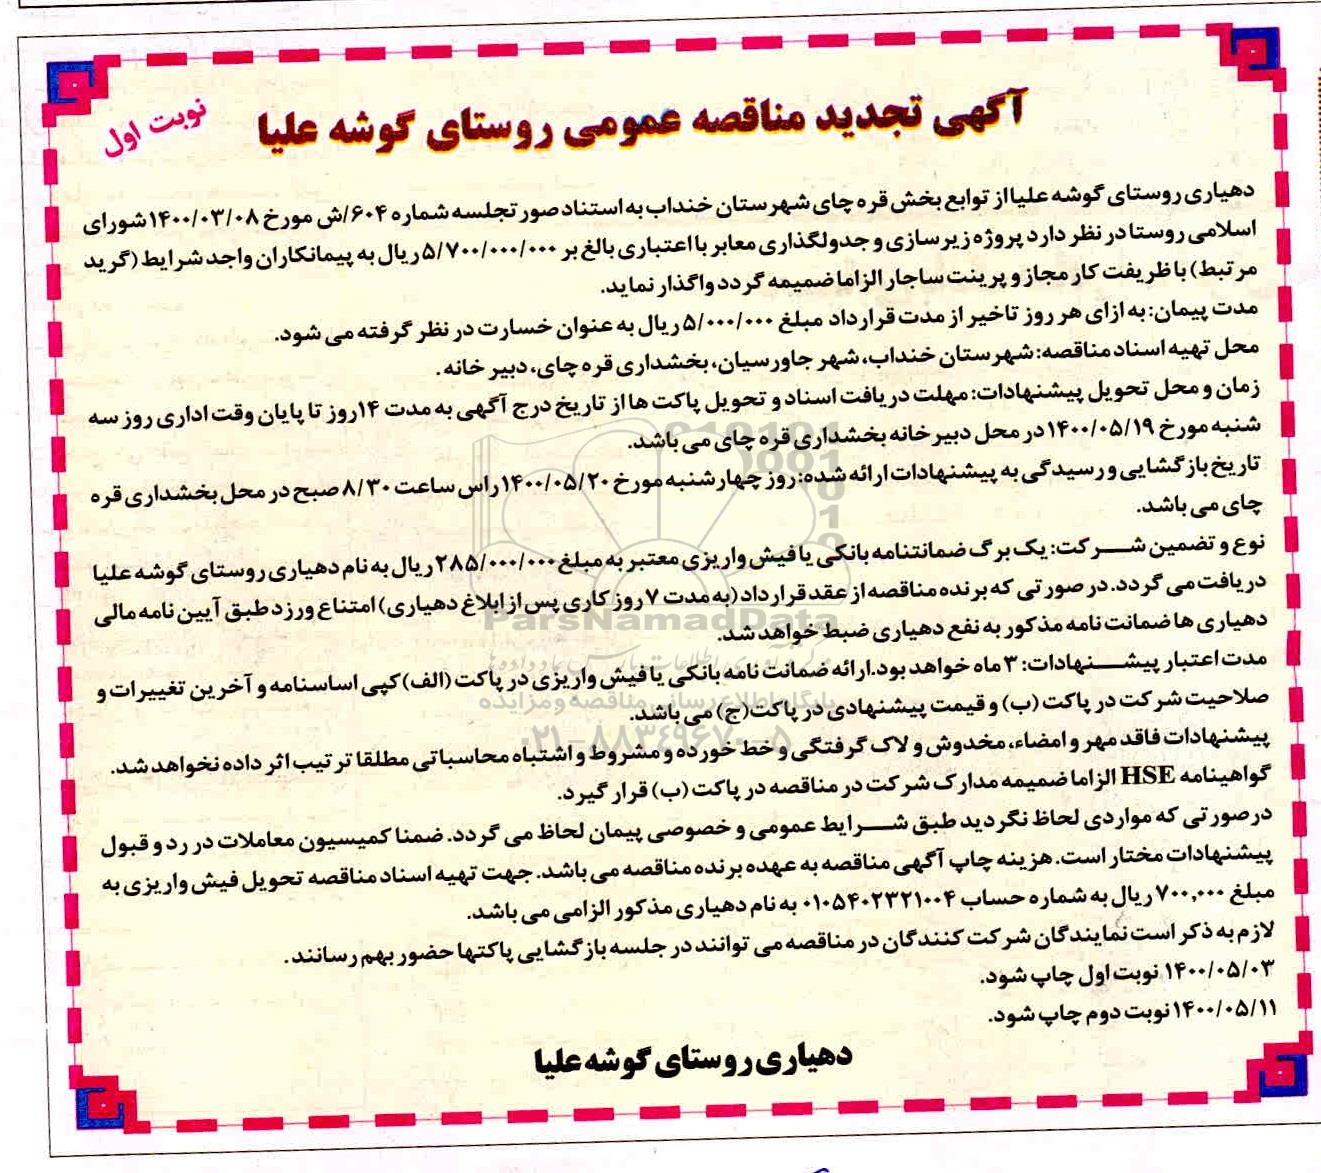 آگهی تجدید مناقصه عمومی روستای گوشه علیا
نوبت اول
دهیاری روستای گوشه علیا از توابع بخش قره چای شهرستان خنداب به استناد صورتجلسه شماره ۶۰۴/ش مورخ ۱۴۰۰/۰۳/۰۸ شورای
اسلامی روستا در نظر دارد پروژه زیرسازی و جدولگذاری معابر با اعتباری بالغ بر ۵/۷۰۰/۰۰۰/۰۰۰ ریال به پیمانکاران واجد شرایط (گرید
مرتبط) با ظریفت کار مجاز و پرینت ساجار الزاما ضمیمه گردد واگذار نماید.
مدت پیمان: به ازای هر روز تاخیر از مدت قرارداد مبلغ ۵/۰۰۰/۰۰۰ ریال به عنوان خسارت در نظر گرفته می شود.
محل تهیه اسناد مناقصه: شهرستان خنداب، شهر جاورسیان، بخشداری قره چای، دبیر خانه.
زمان و محل تحویل پیشنهادات: مهلت دریافت اسناد و تحویل پاکت ها از تاریخ درج آگهی به مدت ۱۴ روز تا پایان وقت اداری روز سه
شنبه مورخ ۱۴۰۰/۰۵/۱۹ در محل دبیرخانه بخشداری قره چای می باشد.
تاریخ بازگشایی و رسیدگی به پیشنهادات ارائه شده: روز چهارشنبه مورخ ۱۴۰۰/۰۵/۲۰ راس ساعت ۸/۳۰ صبح در محل بخشداری قره
چای می باشد.
نوع و تضمین شـــرکت: یک برگ ضمانتنامه بانکی یا فیش واریزی معتبر به مبلغ ۲۸۵/۰۰۰/۰۰۰ ریال به نام دهیاری روستای گوشه علیا
دریافت می گردد. در صورتی که برنده مناقصه از عقد قرارداد (به مدت ۷ روز کاری پس از ابلاغ دهیاری) امتناع ورزد طبق آیین نامه مالی
دهیاری ها ضمانت نامه مذکور به نفع دهیاری ضبط خواهد شد.
مدت اعتبار پیشـــنهادات: ۳ ماه خواهد بود. ارائه ضمانت نامه بانکی یا فیش واریزی در پاکت (الف) کپی اساسنامه و آخرین تغییرات و
صلاحیت شرکت در پاکت (ب) و قیمت پیشنهادی در پاکت (ج) می باشد.
پیشنهادات فاقد مهر و امضاء، مخدوش و لاک گرفتگی و خط خورده و مشروط و اشتباه محاسباتی مطلقا ترتیب اثر داده نخواهد شد.
گواهینامه HSE الزاما ضمیمه مدارک شرکت در مناقصه در پاکت (ب) قرار گیرد.
درصورتی که مواردی لحاظ نگردید طبق شـــرایط عمومی و خصوصی پیمان لحاظ می گردد. ضمنا کمیسیون معاملات در رد و قبول
پیشنهادات مختار است. هزینه چاپ آگهی مناقصه به عهده برنده مناقصه می باشد. جهت تهیه اسناد مناقصه تحویل فیش واریزی به
مبلغ ۷۰۰,۰۰۰ ریال به شماره حساب ۰۱۰۵۴۰۲۳۲۱۰۰۴ به نام دهیاری مذکور الزامی می باشد.
لازم به ذکر است نمایندگان شرکت کنندگان در مناقصه می توانند در جلسه بازگشایی پاکتها حضور بهم رسانند.
۱۴۰۰/۰۵/۰۳ نوبت اول چاپ شود.
۱۴۰۰/۰۵/۱۱ نوبت دوم چاپ شود.
دهیاری روستای گوشه علیا
ParsNamadData
پایگاه اطلاع رسانی مناقصه و مزایده
۰۲۱-۸۸۳۴۹۶۷۰-۵